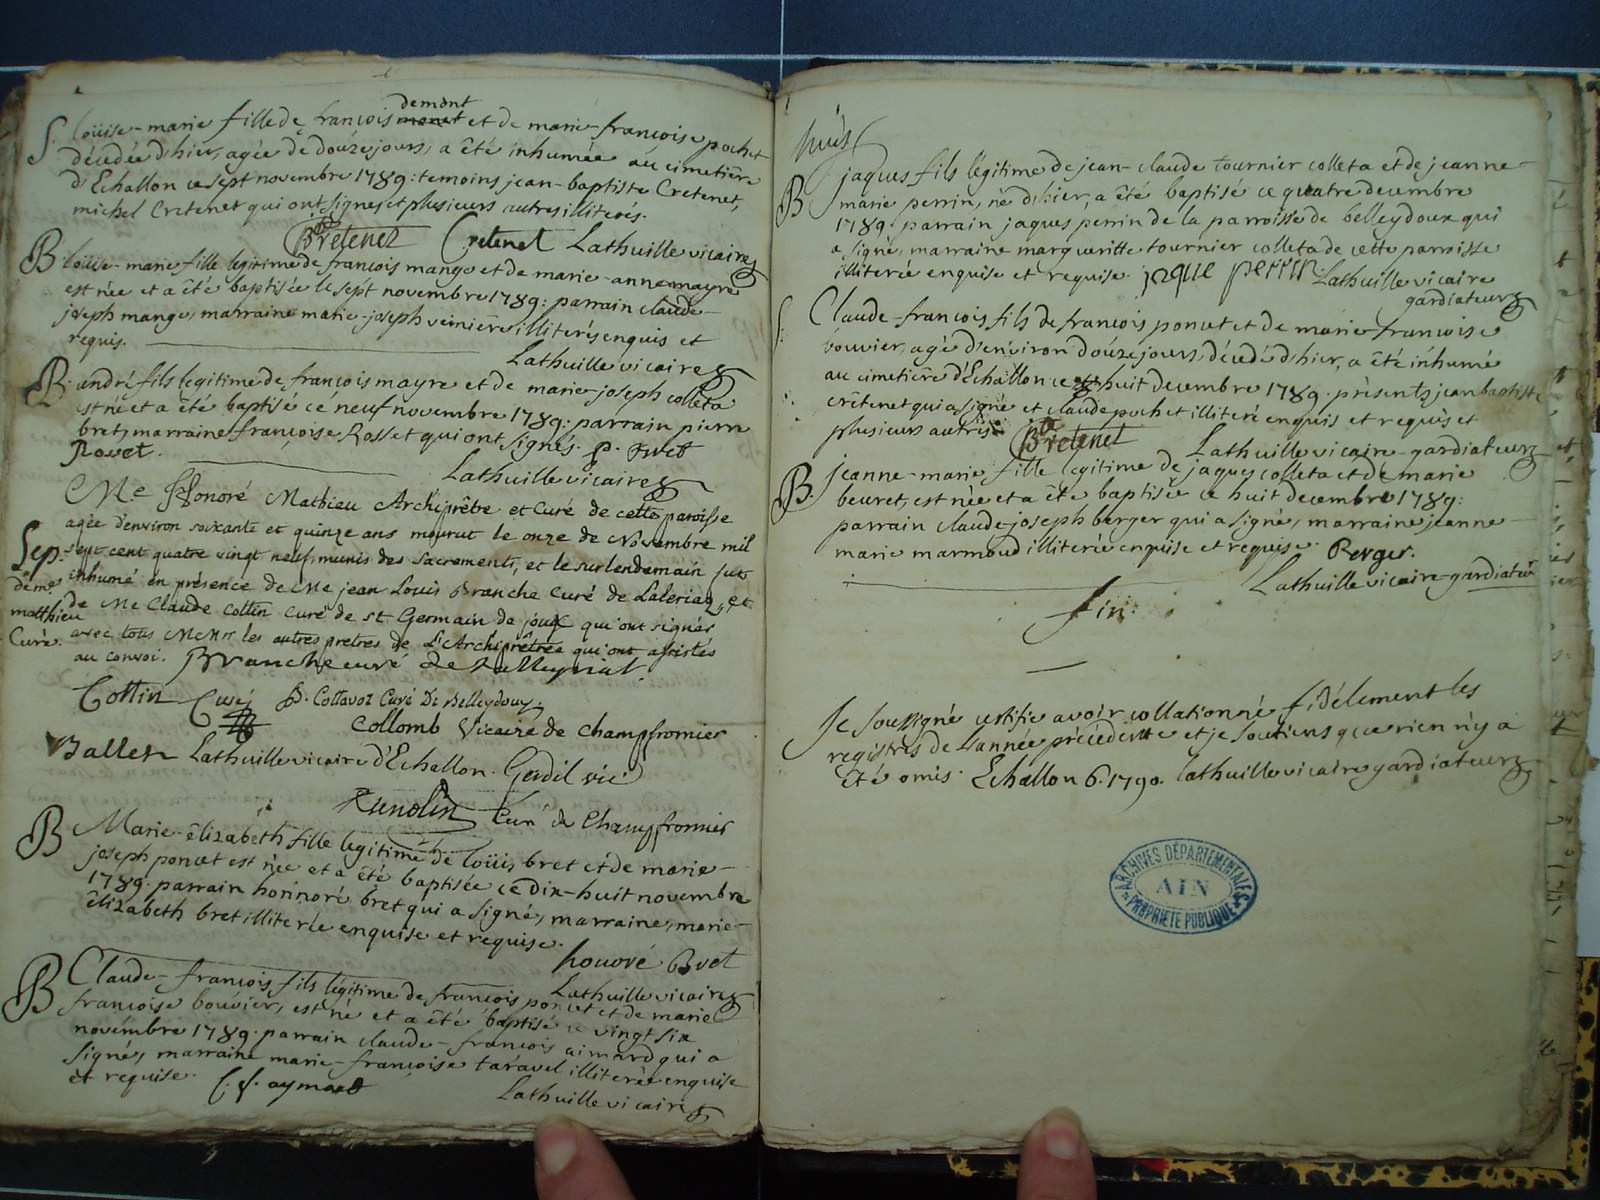 S. Loüise-marie fille de françois demont et de marie-françoise pochet
décédée d'hier, agée de douze jours, a été inhumée au cimetière
d'Echallon ce sept novembre 1789: temoins jean-baptiste Cretenet,
michel Cretenet qui ont signés et plusieurs autres illiterés.
Bte Cretenet Cretenet Lathuille vicaire
B Loüise-marie fille legitime de françois mange et de marie-anne mayre
est née et a été baptisée le sept novembre 1789: parrain claude-
joseph mange, marraine marie-joseph veiniere illiterés enquis et
requis.
Lathuille vicaire
B. andré fils legitime de françois mayre et de marie-joseph colleta
est né et a été baptisé ce neuf novembre 1789: parrain pierre
bret, marraine françoise Rosset qui ont signés. p. bret
Roset.
Lathuille vicaire
Me Honoré Mathieu Archiprêtre et Curé de cette paroisse
agée d'environ soixante et quinze ans mourut le onze de Novembre mil
Sep. sept cent quatre vingt neuf, munis des Sacrements, et le surlendemain fut
de me inhumé en présence de Me jean Louis Branche Curé de Laleriaz, et
matthieu de Me Claude Cottin Curé de st Germain de joux qui ont signés
Curé. avec tous Mrs les autres prêtres de L'Archiprêtrée qui ont assistés
au convoi. Branche curé de Lalleyriat.
Cottin Curé D. Collavoz Curé De Belleydoux.
Collomb Vicaire de Champfromier
Ballen Lathuille vicaire d'Echallon. Gerdil vic
Curé de Champfromier
B Marie-élizabeth fille legitime de loüis bret et de marie-
joseph poncet est née et a été baptisée ce dix-huit novembre
1789. parrain honnoré bret qui a signé, marraine, marie-
élizabeth bret illiterée enquise et requise.
honoré Bret
Lathuille vicaire
B Claude-françois fils legitime de françois poncet et de marie
françoise bouvier, est né et a été baptisé ce vingt six
novembre 1789. parrain claude-françois aimard qui a
signé, marraine marie-françoise taravel illiterée enquise
et requise. C. f. aymard
Lathuille vicaire
huit
jaques fils légitime de jean-claude tournier colleta et de jeanne-
B marie perrin, né d'hier, a été baptisé ce quatre decembre
1789. parrain jaques perrin de la parroisse de belleydoux qui
a signé, marraine margueritte tournier colleta de cette parroisse
illiterée enquise et requise. jaque perrin Lathuille vicaire
gardiateur
S. Claude-françois fils de françois poncet et de marie françoise
bouvier, agé d'environ douze jours, décédé d'hier, a été inhumé
au cimetière d'Echallon ce huit decembre 1789. présents jean baptiste
crétenet qui a signé et claude pochet illiteré enquis et requis et
plusieurs autres. Bte Cretenet
Lathuille vicaire-gardiateur
B. jeanne-marie fille legitime de jaques colleta et de marie
beuret, est née et a été baptisée ce huit decembre 1789:
parrain claude joseph berger qui a signé, marraine jeanne-
marie marmoud illiterée enquise et requise. Berger.
Lathuille vicaire-gardiateur
fin.
Je soussigné certifie avoir collationné fidélement les
registres de l'année précédente et je soutiens que rien n'y a
été omis. Echallon 6. 1790. Lathuille vicaire gardiateur
ARCHIVES DÉPARTEMENTALES
AIN
PROPRIÉTÉ PUBLIQUE